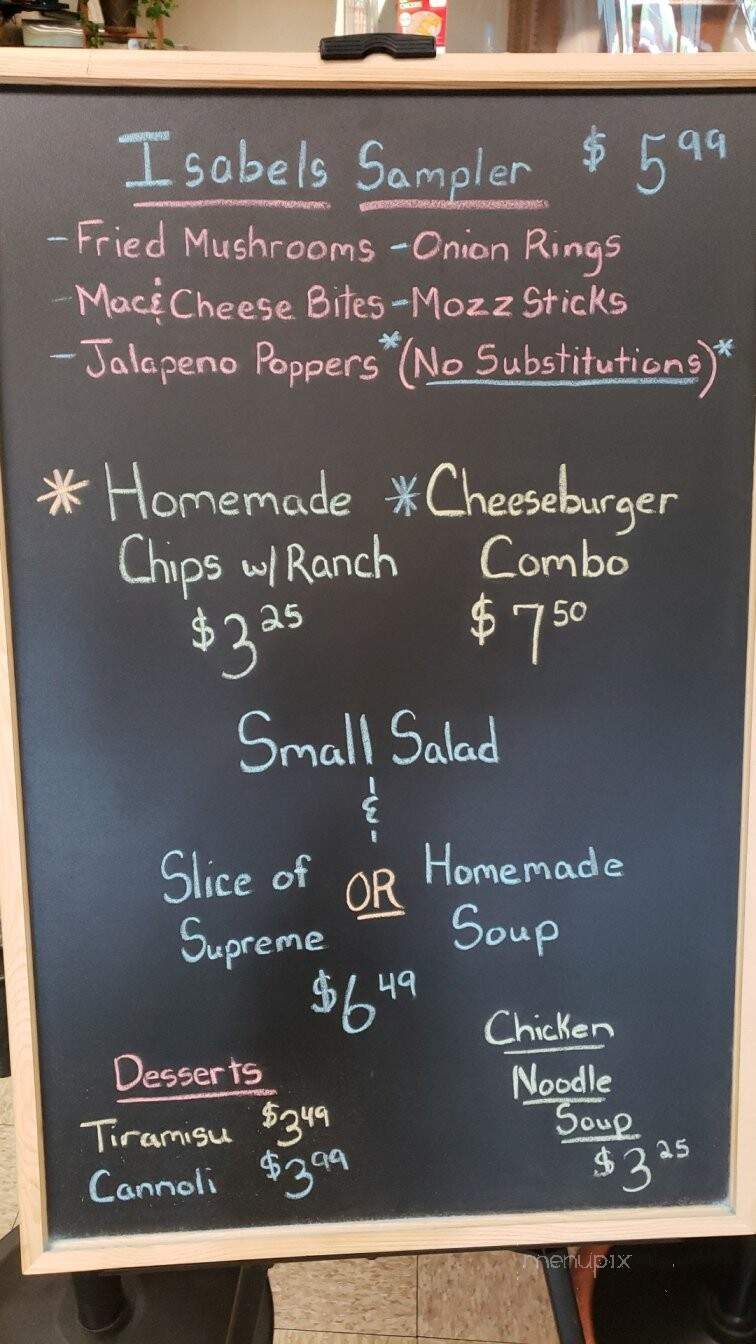 Isabels Sampler $5.99
- Fried Mushrooms - Onion Rings
- Mac & Cheese Bites - Mozz Sticks
- Jalapeno Poppers *(No Substitutions)*
* Homemade
Chips w/ Ranch
$3.25
* Cheeseburger
Combo
$7.50
Small Salad
&
Slice of
Supreme
OR
Homemade
Soup
$6.49
Desserts
Tiramisu $3.49
Cannoli $3.99
Chicken
Noodle
Soup
$3.25
menupix